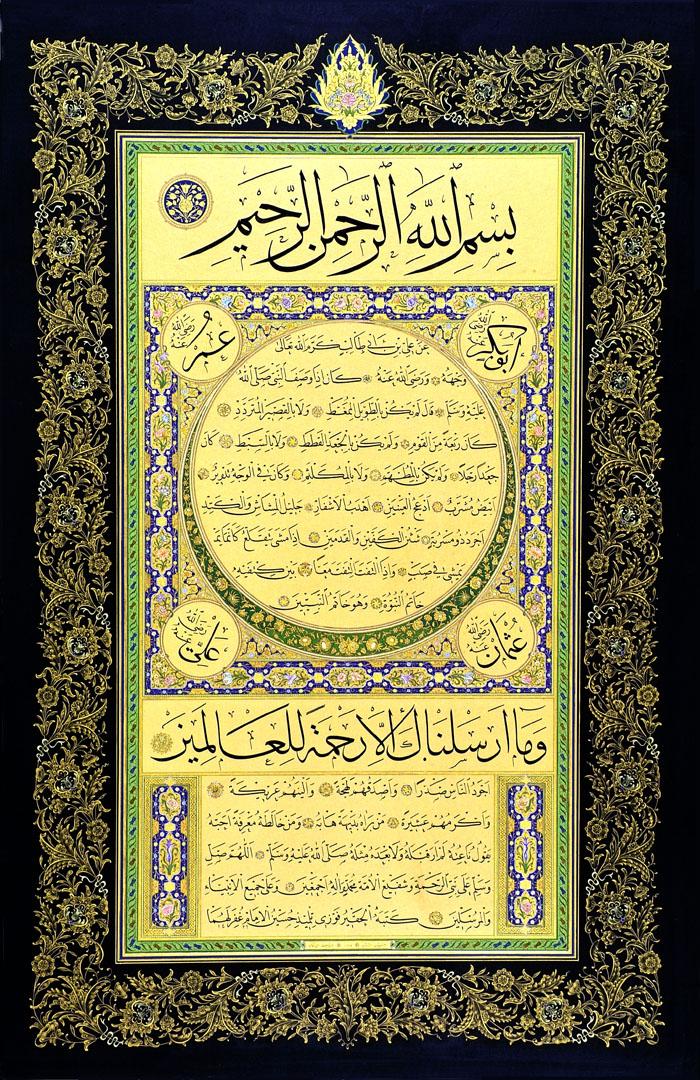 بسم الله الرحمن الرحيم
ابو بكر رضي الله عنه
عمر رضي الله عنه
عن علي بن ابي طالب كرم الله تعالى
وجهه ورضي الله عنه كان اذا وصف النبي صلى الله
عليه وسلم قال لم يكن بالطويل الممغط ولا بالقصير المتردد
كان ربعة من القوم ولم يكن بالجعد القطط ولا بالسبط كان
جعدا رجلا ولم يكن بالمطهم ولا بالمكلثم وكان في الوجه تدوير
ابيض مشرب ادعج العينين اهدب الاشفار جليل المشاش والكتد
اجرد ذو مسربة شثن الكفين والقدمين اذا مشى تقلع كانما
يمشي في صبب واذا التفت التفت معا بين كتفيه
خاتم النبوة وهو خاتم النبيين
عثمان رضي الله عنه
علي رضي الله عنه
وما ارسلناك الا رحمة للعالمين
اجود الناس صدرا واصدقهم لهجة والينهم عريكة
واكرمهم عشيرة من رآه بديهة هابه ومن خالطه معرفة احبه
يقول ناعته لم ار قبله ولا بعده مثله صلى الله عليه وسلم اللهم صل
وسلم على نبي الرحمة وشفيع الامة محمد وآله اجمعين وعلى جميع الانبياء
والمرسلين كتبه الحقير فوزي تلميذ حسين الامام غفر لهما